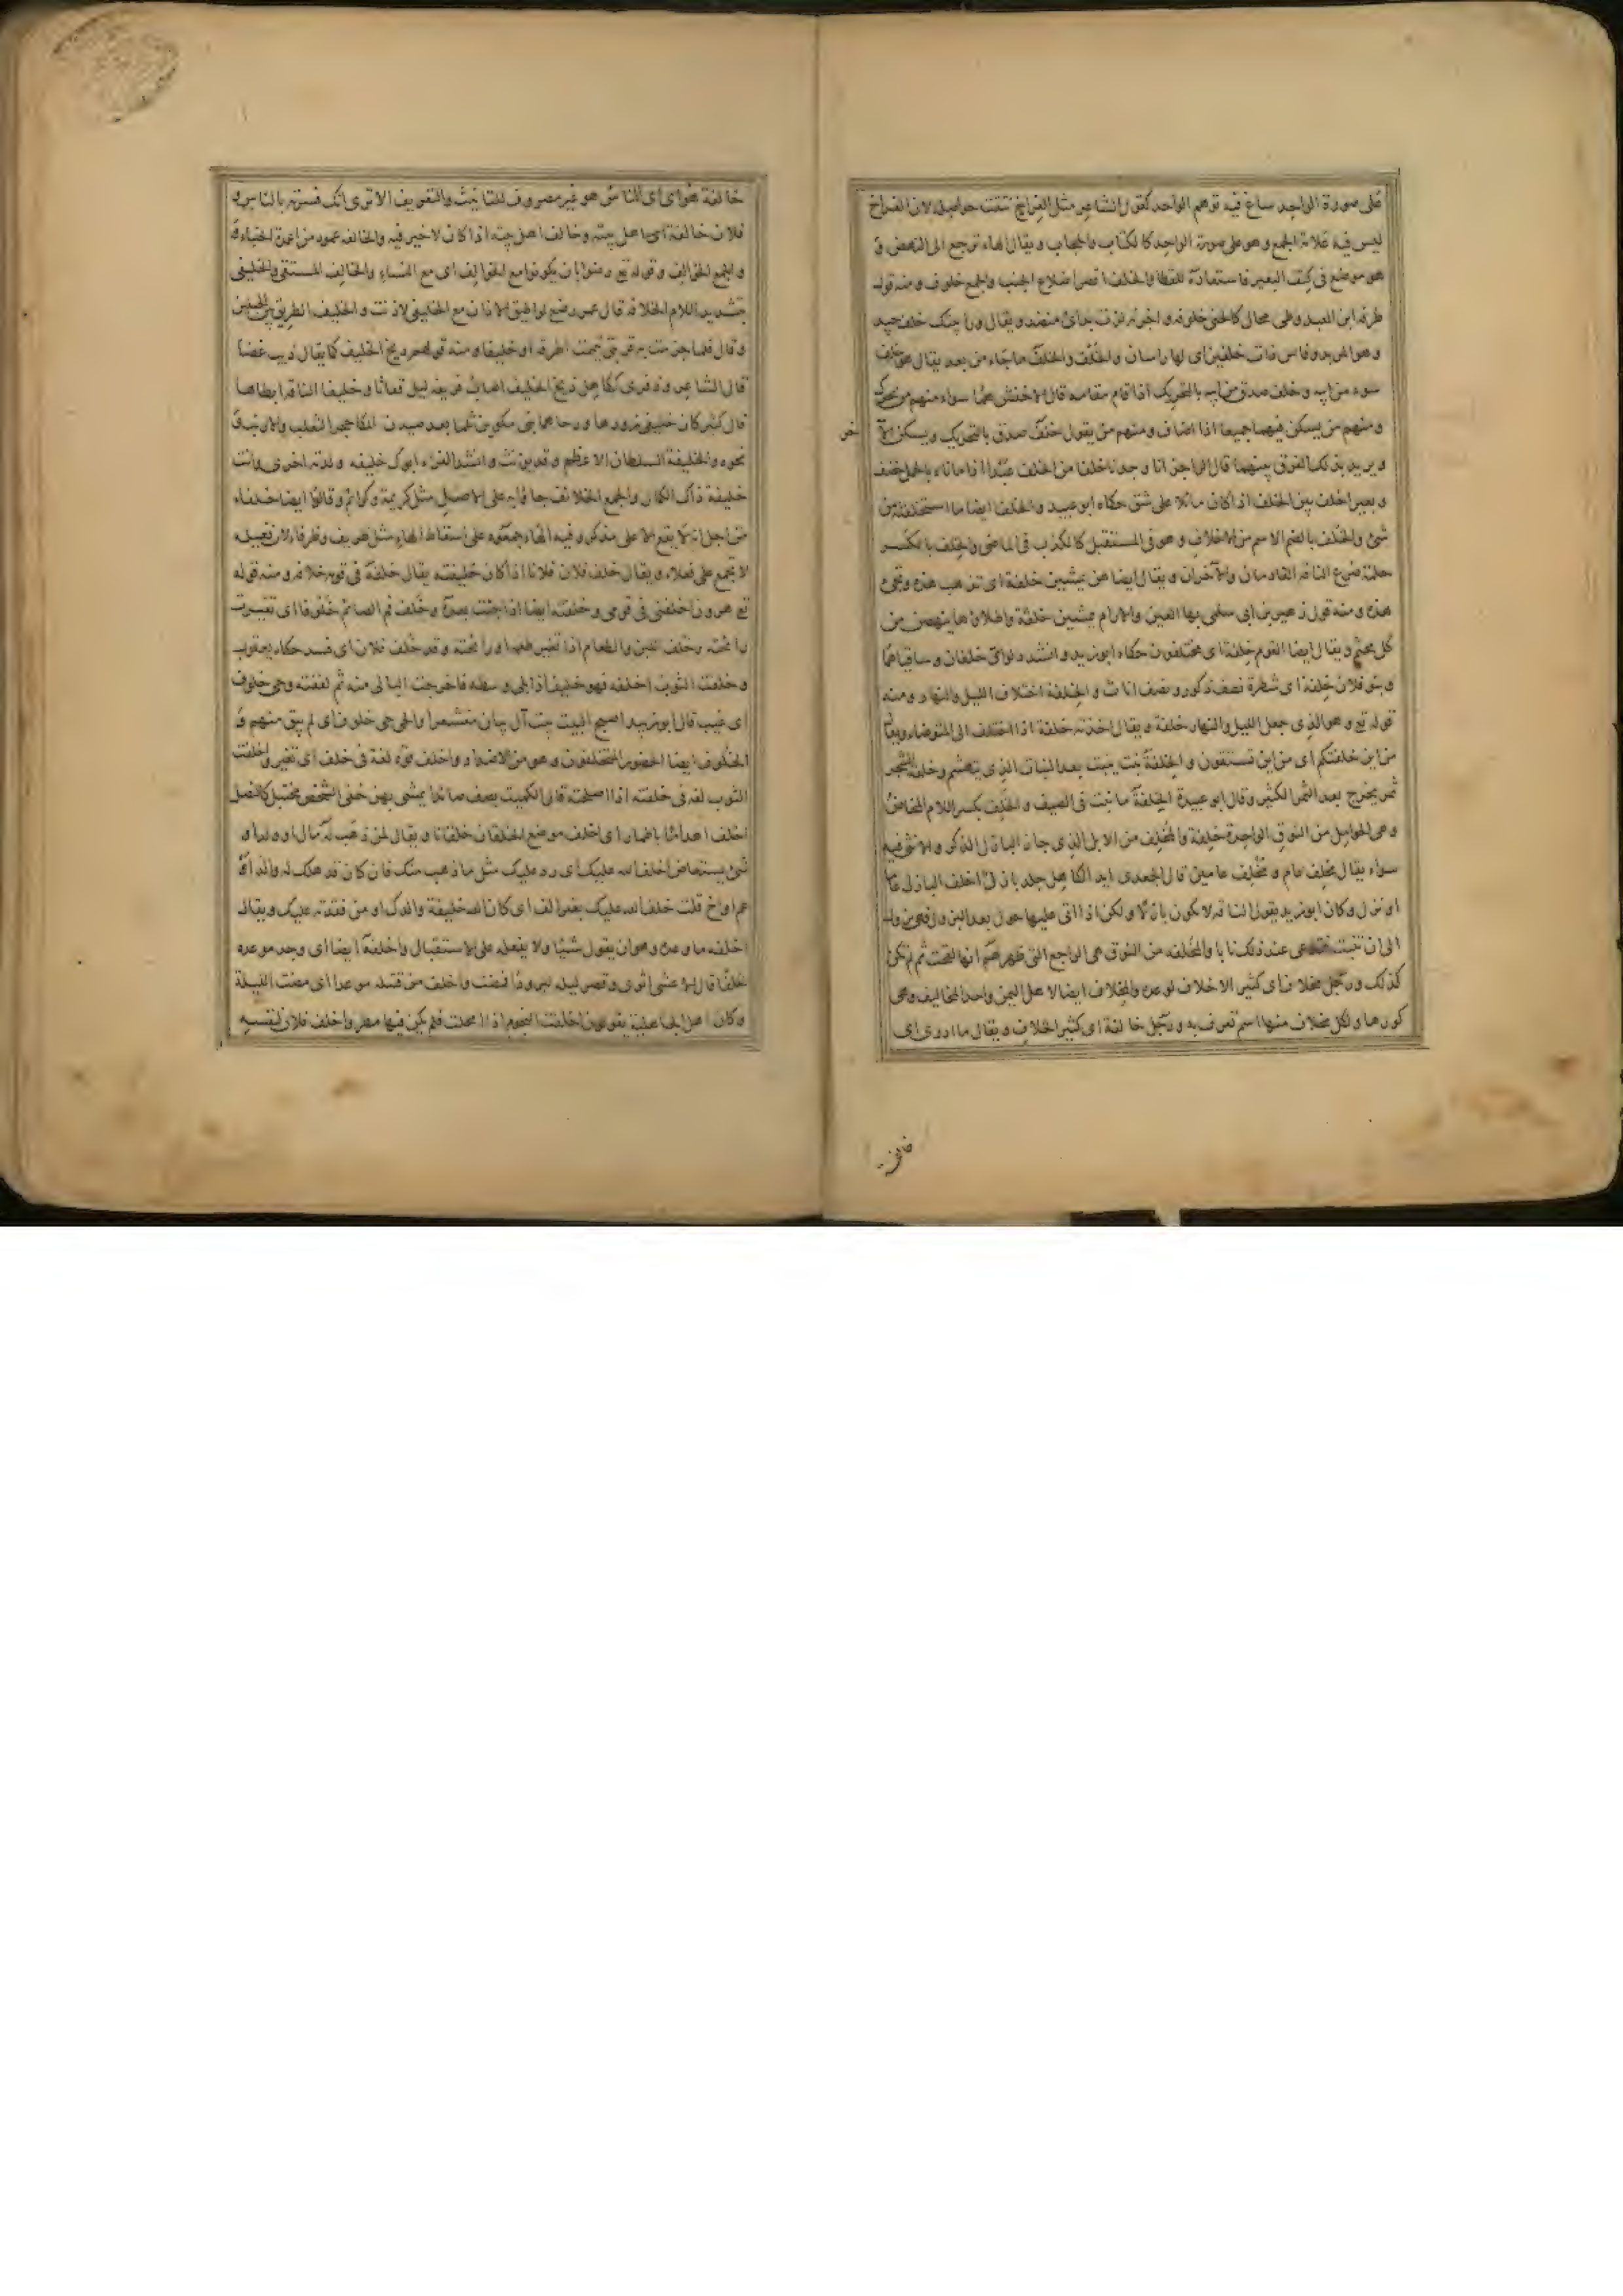 على صورة الواحد ساغ فيه توهم الواحد كقول الشاعر مثل الفراخ نتفت حواصله لان الفراخ
ليس فيه علامة الجمع وهو على صورة الواحد كالكتاب والحجاب ويقال الهاء ترجع الى النهض و
هو موضع فى كتف البعير فاستعاره للقطا والخلف اقصر اضلاع الجنب والجمع خلوف ومنه قول
طرفة ابن العبد وطى محال كالحنى خلوفه واجرنة لزت بدأى منضد ويقال وراء بيتك خلف جيد
وهو المربد وفاس ذات خلفين اى لها راسان والخلف والخلف ما جاء من بعد يقال هو خلف
سوء من ابيه وخلف صدق من ابيه بالتحريك اذا قام مقامه قال الاخفش هما سواء منهم من يحرك
ومنهم من يسكن فيهما جميعا اذا اضاف ومنهم من يقول خلف صدق بالتحريك ويسكن الآ
خر
ويريد بذلك الفرق بينهما قال الراجز انا وجدنا خلفا من الخلف عبدا اذا ما ناء بالحمل خضف
وبعير اخلف بين الخلف اذا كان مائلا على شق حكاه ابو عبيد والخلف ايضا ما استخلفته من
شئ والخلف بالضم الاسم من الاخلاف وهو فى المستقبل كالكذب فى الماضى والخلف بالكسر
حلمة ضرع الناقة القادمان والآخران ويقال ايضا هن يمشين خلفة اى تذهب هذه وتجئ
هذه ومنه قول زهير بن ابى سلمى بها العين والارام يمشين خلفة واطلاؤها ينهضن من
كل مجثم ويقال ايضا القوم خلفة اى مختلفون حكاه ابو زيد وانشد دلواى خلفان وساقياهما
وبنو فلان خلفة اى شطرة نصف ذكور ونصف اناث والخلفة اختلاف الليل والنهار ومنه
قوله تع وهو الذى جعل الليل والنهار خلفة ويقال اخذته خلفة اذا اختلف الى المتوضاء ويقال
من اين خلفتكم اى من اين تستقون والخلفة نبت ينبت بعد النبات الذى يتهشم وخلفة الشجر
ثمر يخرج بعد الثمر الكثير وقال ابو عبيدة الخلفة ما نبت فى الصيف والخلف بكسر اللام المخاض
وهى الحوامل من النوق الواحدة خلفة والمخلف من الابل الذى جاز البازل الذكر والانثى فيه
سواء يقال مخلف عام ومخلف عامين قال الجعدى ايد الكاهل جلد بازل اخلف البازل عاما
او بزل وكان ابو زيد يقول الناقة لا يكون بازلا ولكن اذا اتى عليها حول بعد البزول فهى بزول
الى ان تنيب فتدعى عند ذلك نابا والمخلفة من النوق هى الراجع التى ظهر لهم انها لقحت ثم لم تكن
كذلك ورجل مخلاف اى كثير الاخلاف لوعده والمخلاف ايضا لاهل اليمن واحد المخاليف وهى
كورها ولكل مخلاف منها اسم تعرف به ورجل خالفة اى كثير الخلاف ويقال ما ادرى اى
خالفة هو اى اى الناس هو غير مصروف للتانيث والتعريف الا ترى انك فسرته بالناس و
فلان خالفة اهل بيته وخالف اهل بيته اذا كان لا خير فيه والخالفة عمود من اعمدة الخباء و
والجمع الخوالف وقوله تع رضوا بان يكونوا مع الخوالف اى مع النساء والخالف المستقى والخليفى
بتشديد اللام الخلافة قال عمر رضع لو اطيق الاذان مع الخليفى لاذنت والخليف الطريق بين الجبلين
وقال فلما جزمت به قربتى تيممت اطرقة او خليفا ومنه قولهم ذيخ الخليف كما يقال ذيب غضا
قال الشاعر وذفرى ككاهل ذيخ الخليف اصاب فريقة ليل فعاثا وخليفا الناقة ابطاها
قال كثير كان خليفى زورها ورحاهما بنى مكوين ثلما بعد صيدن المكا جحر الثعلب والارنب و
نحوه والخليفة السلطان الاعظم وقد يؤنث وانشد الفراء ابوك خليفة ولدته اخرى وانت
خليفة ذاك الكمال والجمع الخلائف جاؤا به على الاصل مثل كريمة وكرائم وقالوا ايضا خلفاء
من اجل انه لا يقع الا على مذكر وفيه الهاء جمعوه على اسقاط الهاء مثل ظريف وظرفاء لان فعيلة
لا يجمع على فعلاء ويقال خلف فلان فلانا اذا كان خليفته يقال خلفه فى قومه خلافة ومنه قوله
تع هرون اخلفنى فى قومى وخلفته ايضا اذا جئت بعده وخلف فم الصائم خلوفا اى تغيرت
رائحته وخلف اللبن والطعام اذا تغير طعمه او رائحته وقد خلف فلان اى فسد حكاه يعقوب
وخلفت الثوب اخلفه فهو خليف اذا بلى وسطه فاخرجت البالى منه ثم لفقته وحى خلوف
اى غيب قال ابو زبيد اصبح البيت بيت آل بيان مقشعرا والحى حى خلوف اى لم يبق منهم و
الخلوف ايضا الحضور المتخلفون وهو من الاضداد واخلف فوه لغة فى خلف اى تغير واخلفت
الثوب لغة فى خلفته اذا اصلحته قال الكميت يصف صائدا يمشى بهن خفى الشخص مختتل كالنصل
اخلف اهداما باطمار اى اخلف موضع الخلقان خلقانا ويقال لمن ذهب له مال او ولد او
شئ يستعاض اخلف الله عليك اى رد عليك مثل ما ذهب منك فان كان قد هلك له والد او
عم او اخ قلت خلف الله عليك بغير الف اى كان الله خليفة والدك او من فقدته عليك ويقال
اخلفه ما وعده وهو ان يقول شيئا ولا يفعله على الاستقبال واخلفه ايضا اى وجد موعده
خلفا قال الاعشى اثوى وقصر ليلة ليزودا فمضت واخلف من قتيلة موعدا اى مضت الليلة
وكان اهل الجاهلية يقولون اخلفت النجوم اذا امحلت فلم يكن فيها مطر واخلف فلان لنفسه